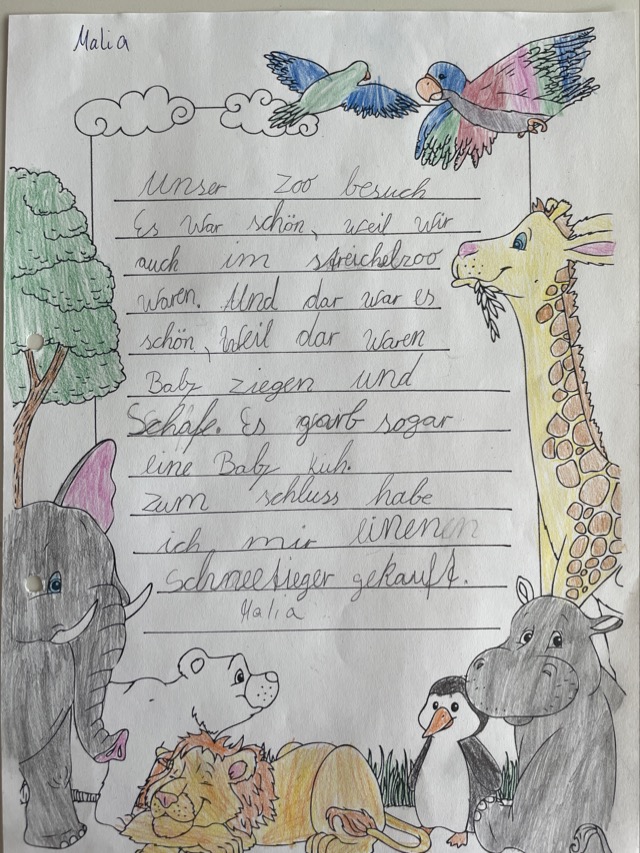 Malia
Unser Zoo besuch
Es war schön, weil wir
auch im streichelzoo
waren. Und dar war es
schön, weil dar waren
Baby ziegen und
Schafe. Es garb sogar
eine Baby kuh.
zum schluss habe
ich mir einen
schneetieger gekauft.
Malia